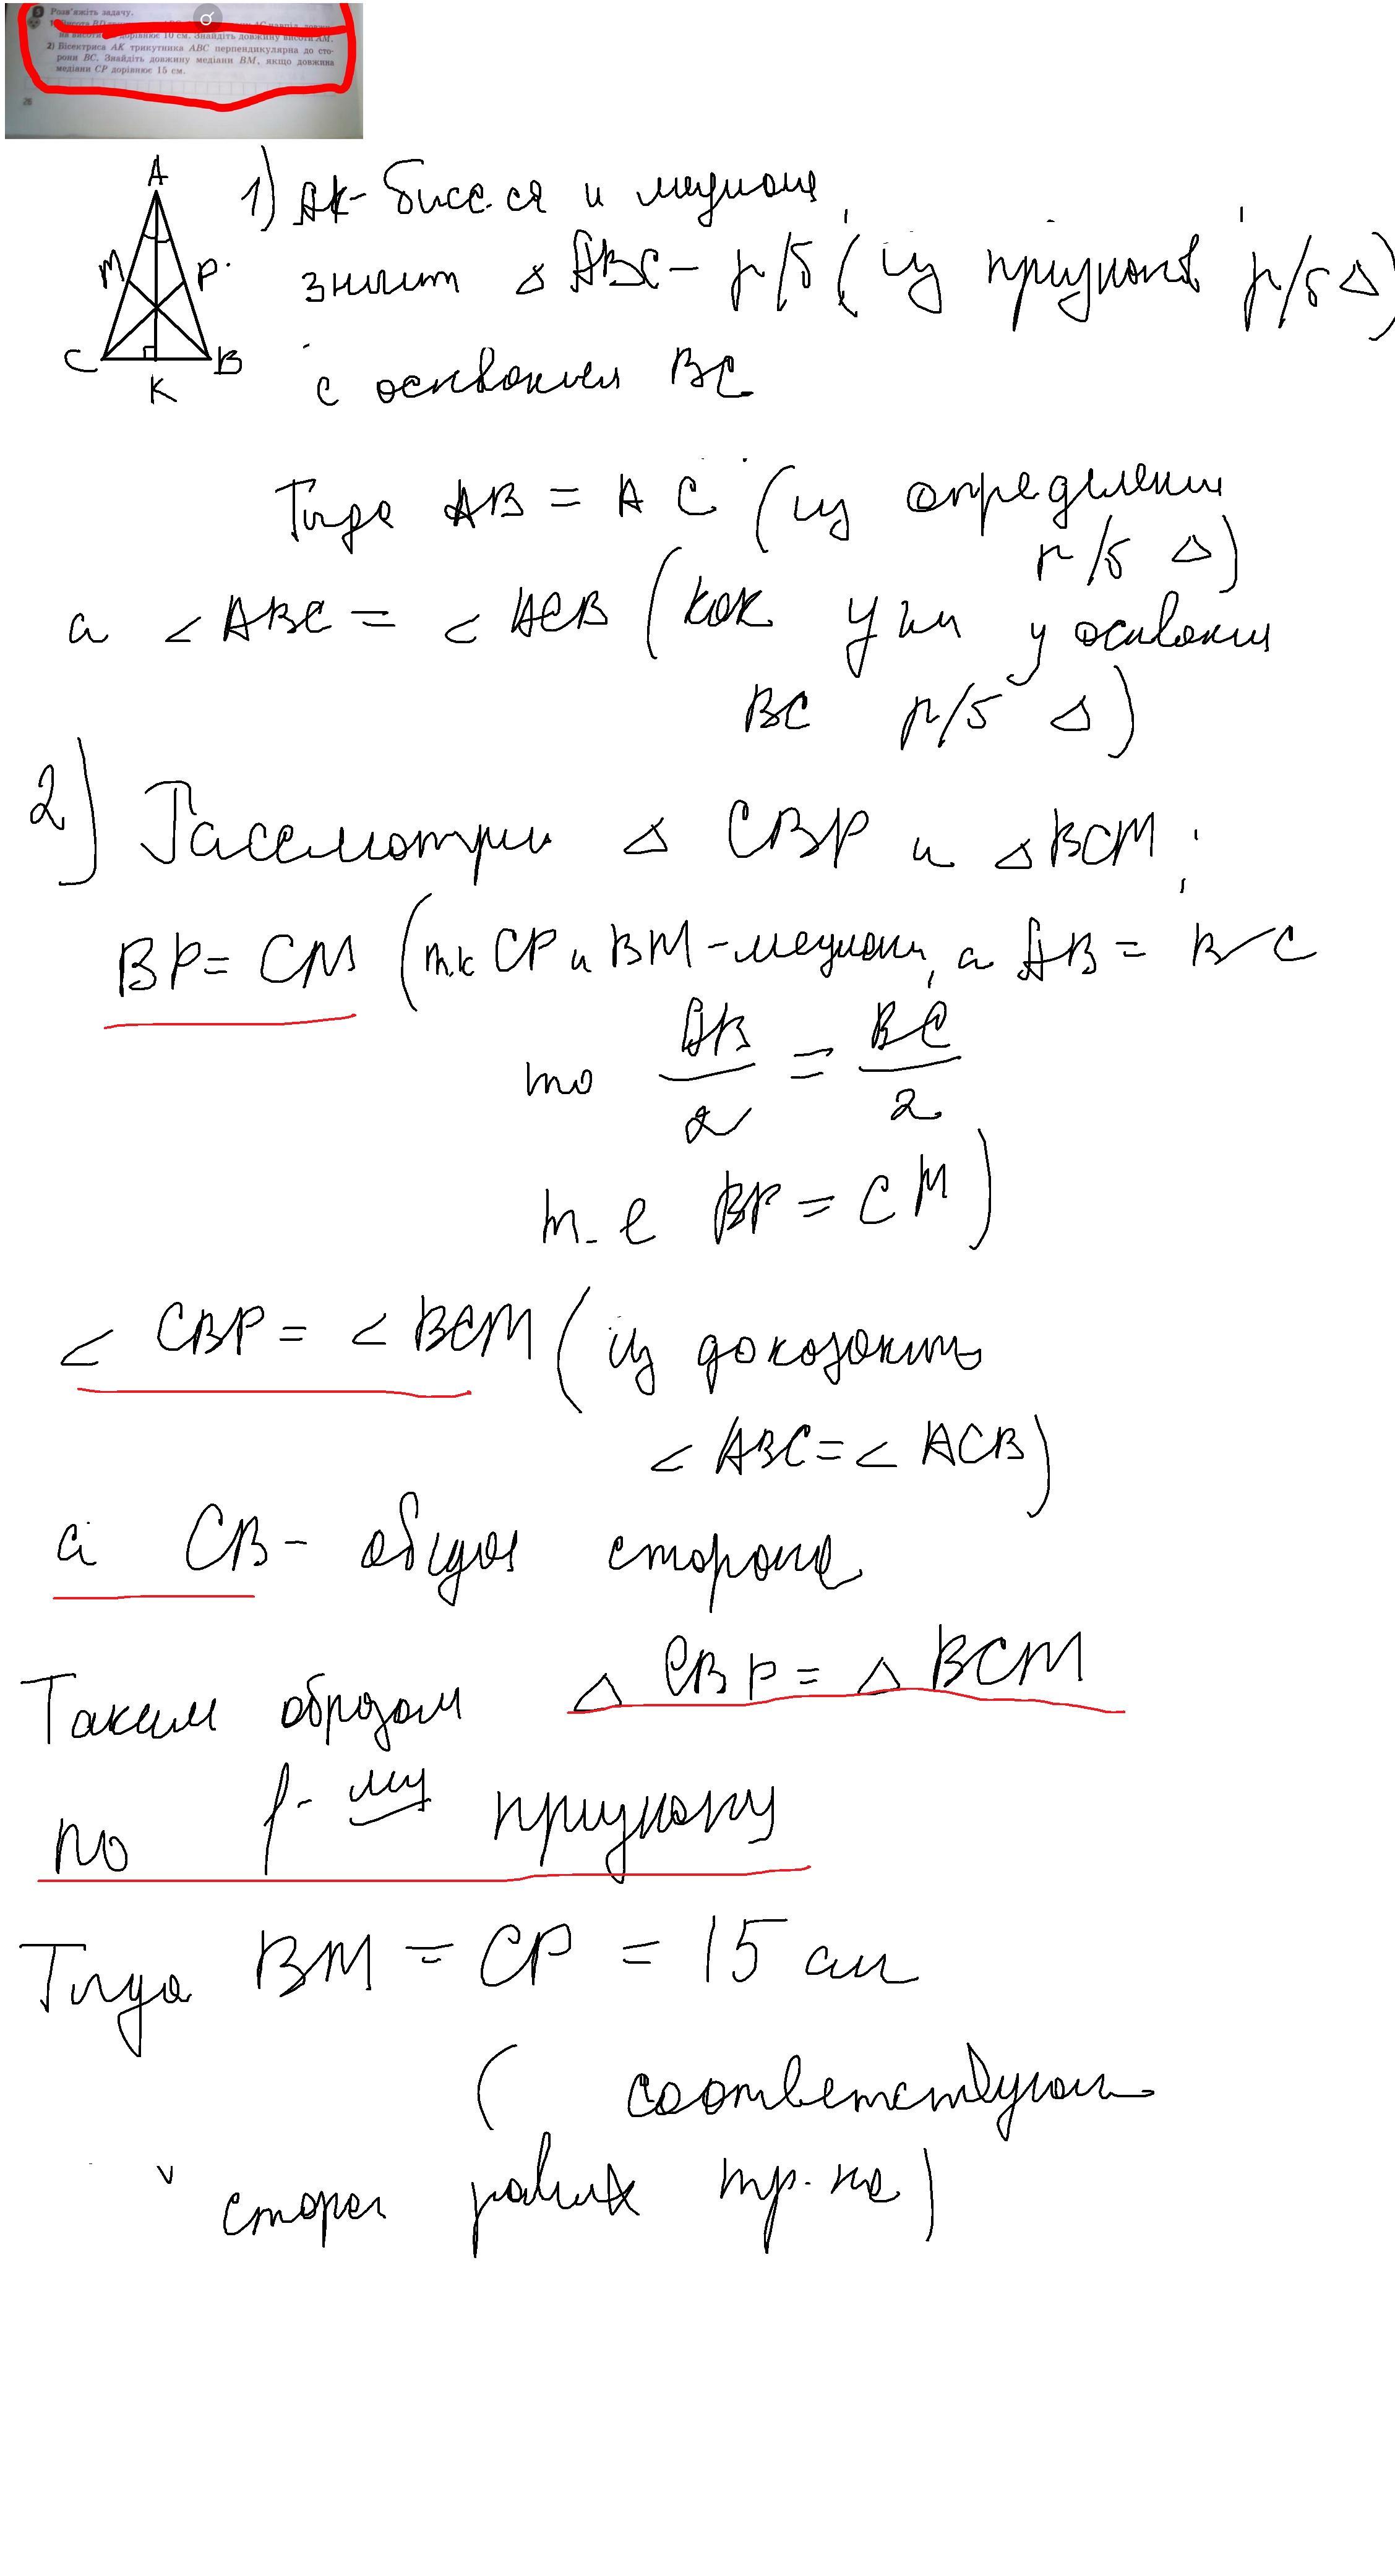 Розв'яжіть задачу.
дорівнює 10 см. Знайдіть довжину висоти AM.
2) Бісектриса AK трикутника ABC перпендикулярна до сто-
рони BC. Знайдіть довжину медіани BM, якщо довжина
медіани CP дорівнює 15 см.
26
A
M P
C B
K
1) AK - бисс.ся и медиана
значит △ ABC - р/б (из признаков р/б △)
с основанием BC
Тогда AB = AC (из определения
р/б △)
а ∠ABC = ∠ACB (как углы у основания
BC р/б △)
2) Рассмотрим △ CBP и △ BCM:
BP = CM (т.к CP и BM - медианы, а AB = BC
то AB/2 = BC/2
т.е BP = CM)
∠ CBP = ∠ BCM (из доказанного
∠ ABC = ∠ ACB)
а CB - общая сторона
Таким образом △ CBP = △ BCM
по 1-му признаку
Тогда BM = CP = 15 см
(соответствующие
стороны равных тр-ка)